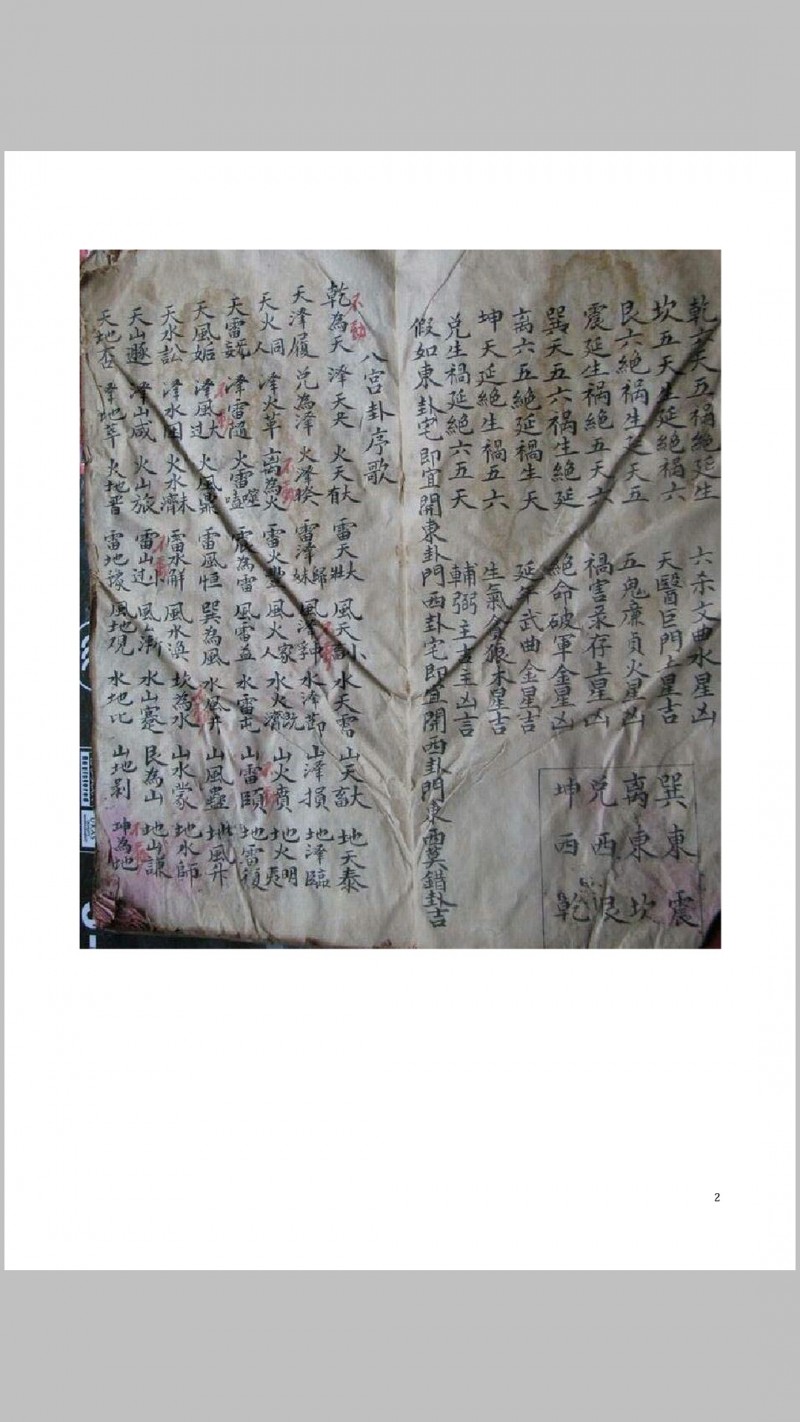 乾六天五禍絶延生
坎五天生延絶禍六
艮六絶禍生延天五
震延生禍絶五天六
巽天五六禍生絶延
离六五絶延禍生天
坤天延絶生禍五六
兑生禍延絶六五天
六杀文曲水星凶
天醫巨門土星吉
五鬼廉貞火星凶
禍害录存土星凶
絶命破軍金星凶
延年武曲金星吉
生氣狼木星吉
輔弼主吉主凶言
假如東卦宅即宜開東卦門西卦宅即宜開西卦門東西莫錯卦吉
巽离兑坤
東東西西
震坎艮乾
八宮卦序歌
不動
乾為天 泽天夬 火天大有 雷天大壮 風天小畜 水天需 山天大畜 地天泰
天泽履 兑為泽 火泽睽 雷泽歸妹 風泽中孚 水泽節 山泽損 地泽臨
天火同人 泽火革 离為火 雷火豐 風火家人 水火既濟 山火賁 地火明夷
天雷无妄 泽雷隨 火雷噬嗑 震為雷 風雷益 水雷屯 山雷頤 地雷復
天風姤 泽風大过 火風鼎 雷風恒 巽為風 水風井 山風蠱 地風升
天水訟 泽水困 火水未濟 雷水解 風水渙 坎為水 山水蒙 地水師
天山遯 泽山咸 火山旅 雷山小过 風山漸 水山蹇 艮為山 地山謙
天地否 泽地萃 火地晋 雷地豫 風地观 水地比 山地剥 坤為地
2